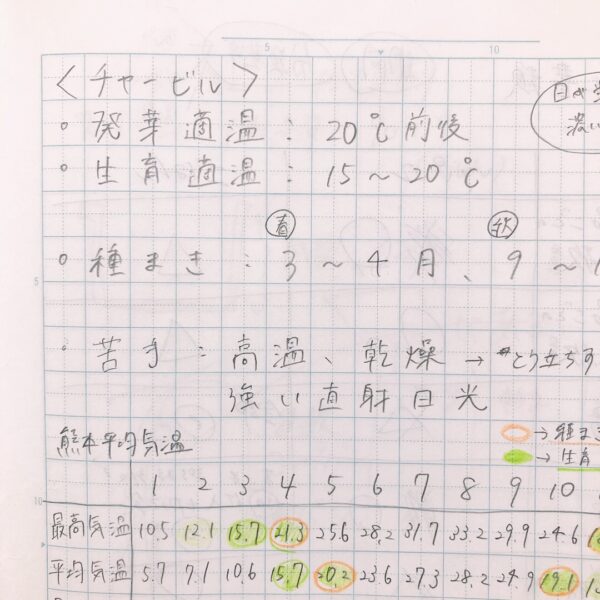 5 10
<チャービル>
日が当
濃い
・発芽適温:20℃前後
・生育適温:15~20℃
春 秋
5
・種まき:3~4月、9~1
・苦手:高温、乾燥→*とう立ちす
強い直射日光
→種まき
→生育
熊本平均気温
10
1 2 3 4 5 6 7 8 9 10
最高気温 10.5 12.1 15.7 21.3 25.6 28.2 31.7 33.2 29.9 24.6
平均気温 5.7 7.1 10.6 15.7 20.2 23.6 27.3 28.2 24.9 19.1